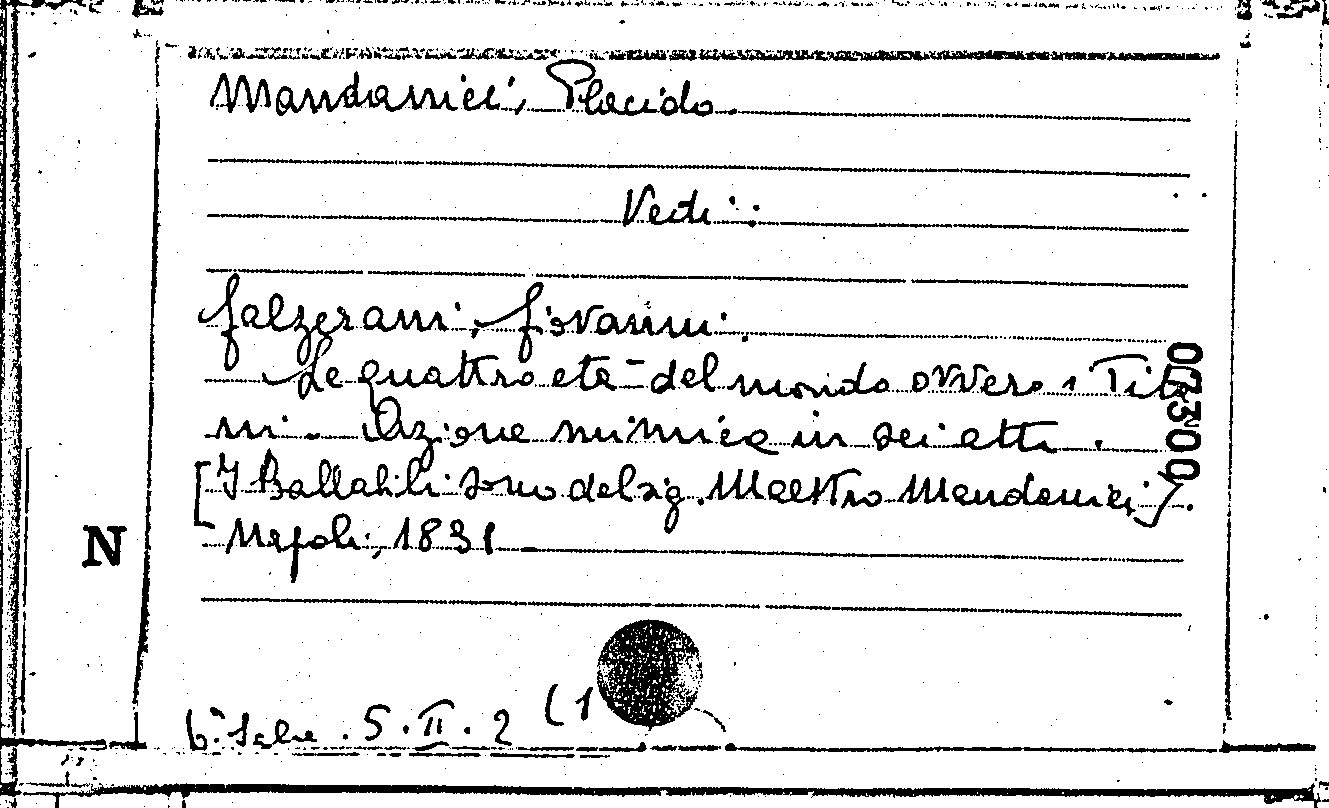 Mandanici, Placido.
Vedi:
Galzerani, Giovanni.
Le quattro età del mondo ovvero i Tita
ni. Azione mimica in sei atti.
[I Ballabili sono del sig. Maestro Mandanici].
Napoli, 1831
N
007300
6ª Sala. 5.II.2 (1